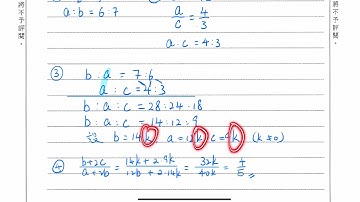 將不予評閱。
將不予評閱。
a:b = 6:7
a/c = 4/3
a:c = 4:3
③ b:a = 7:6
a:c = 4:3
b:a:c = 28:24:18
b:a:c = 14:12:9
設 b=14k a=12k c=9k (k≠0)
④ b+2c/a+2b = 14k+2·9k/12k+2·14k = 32k/40k = 4/5